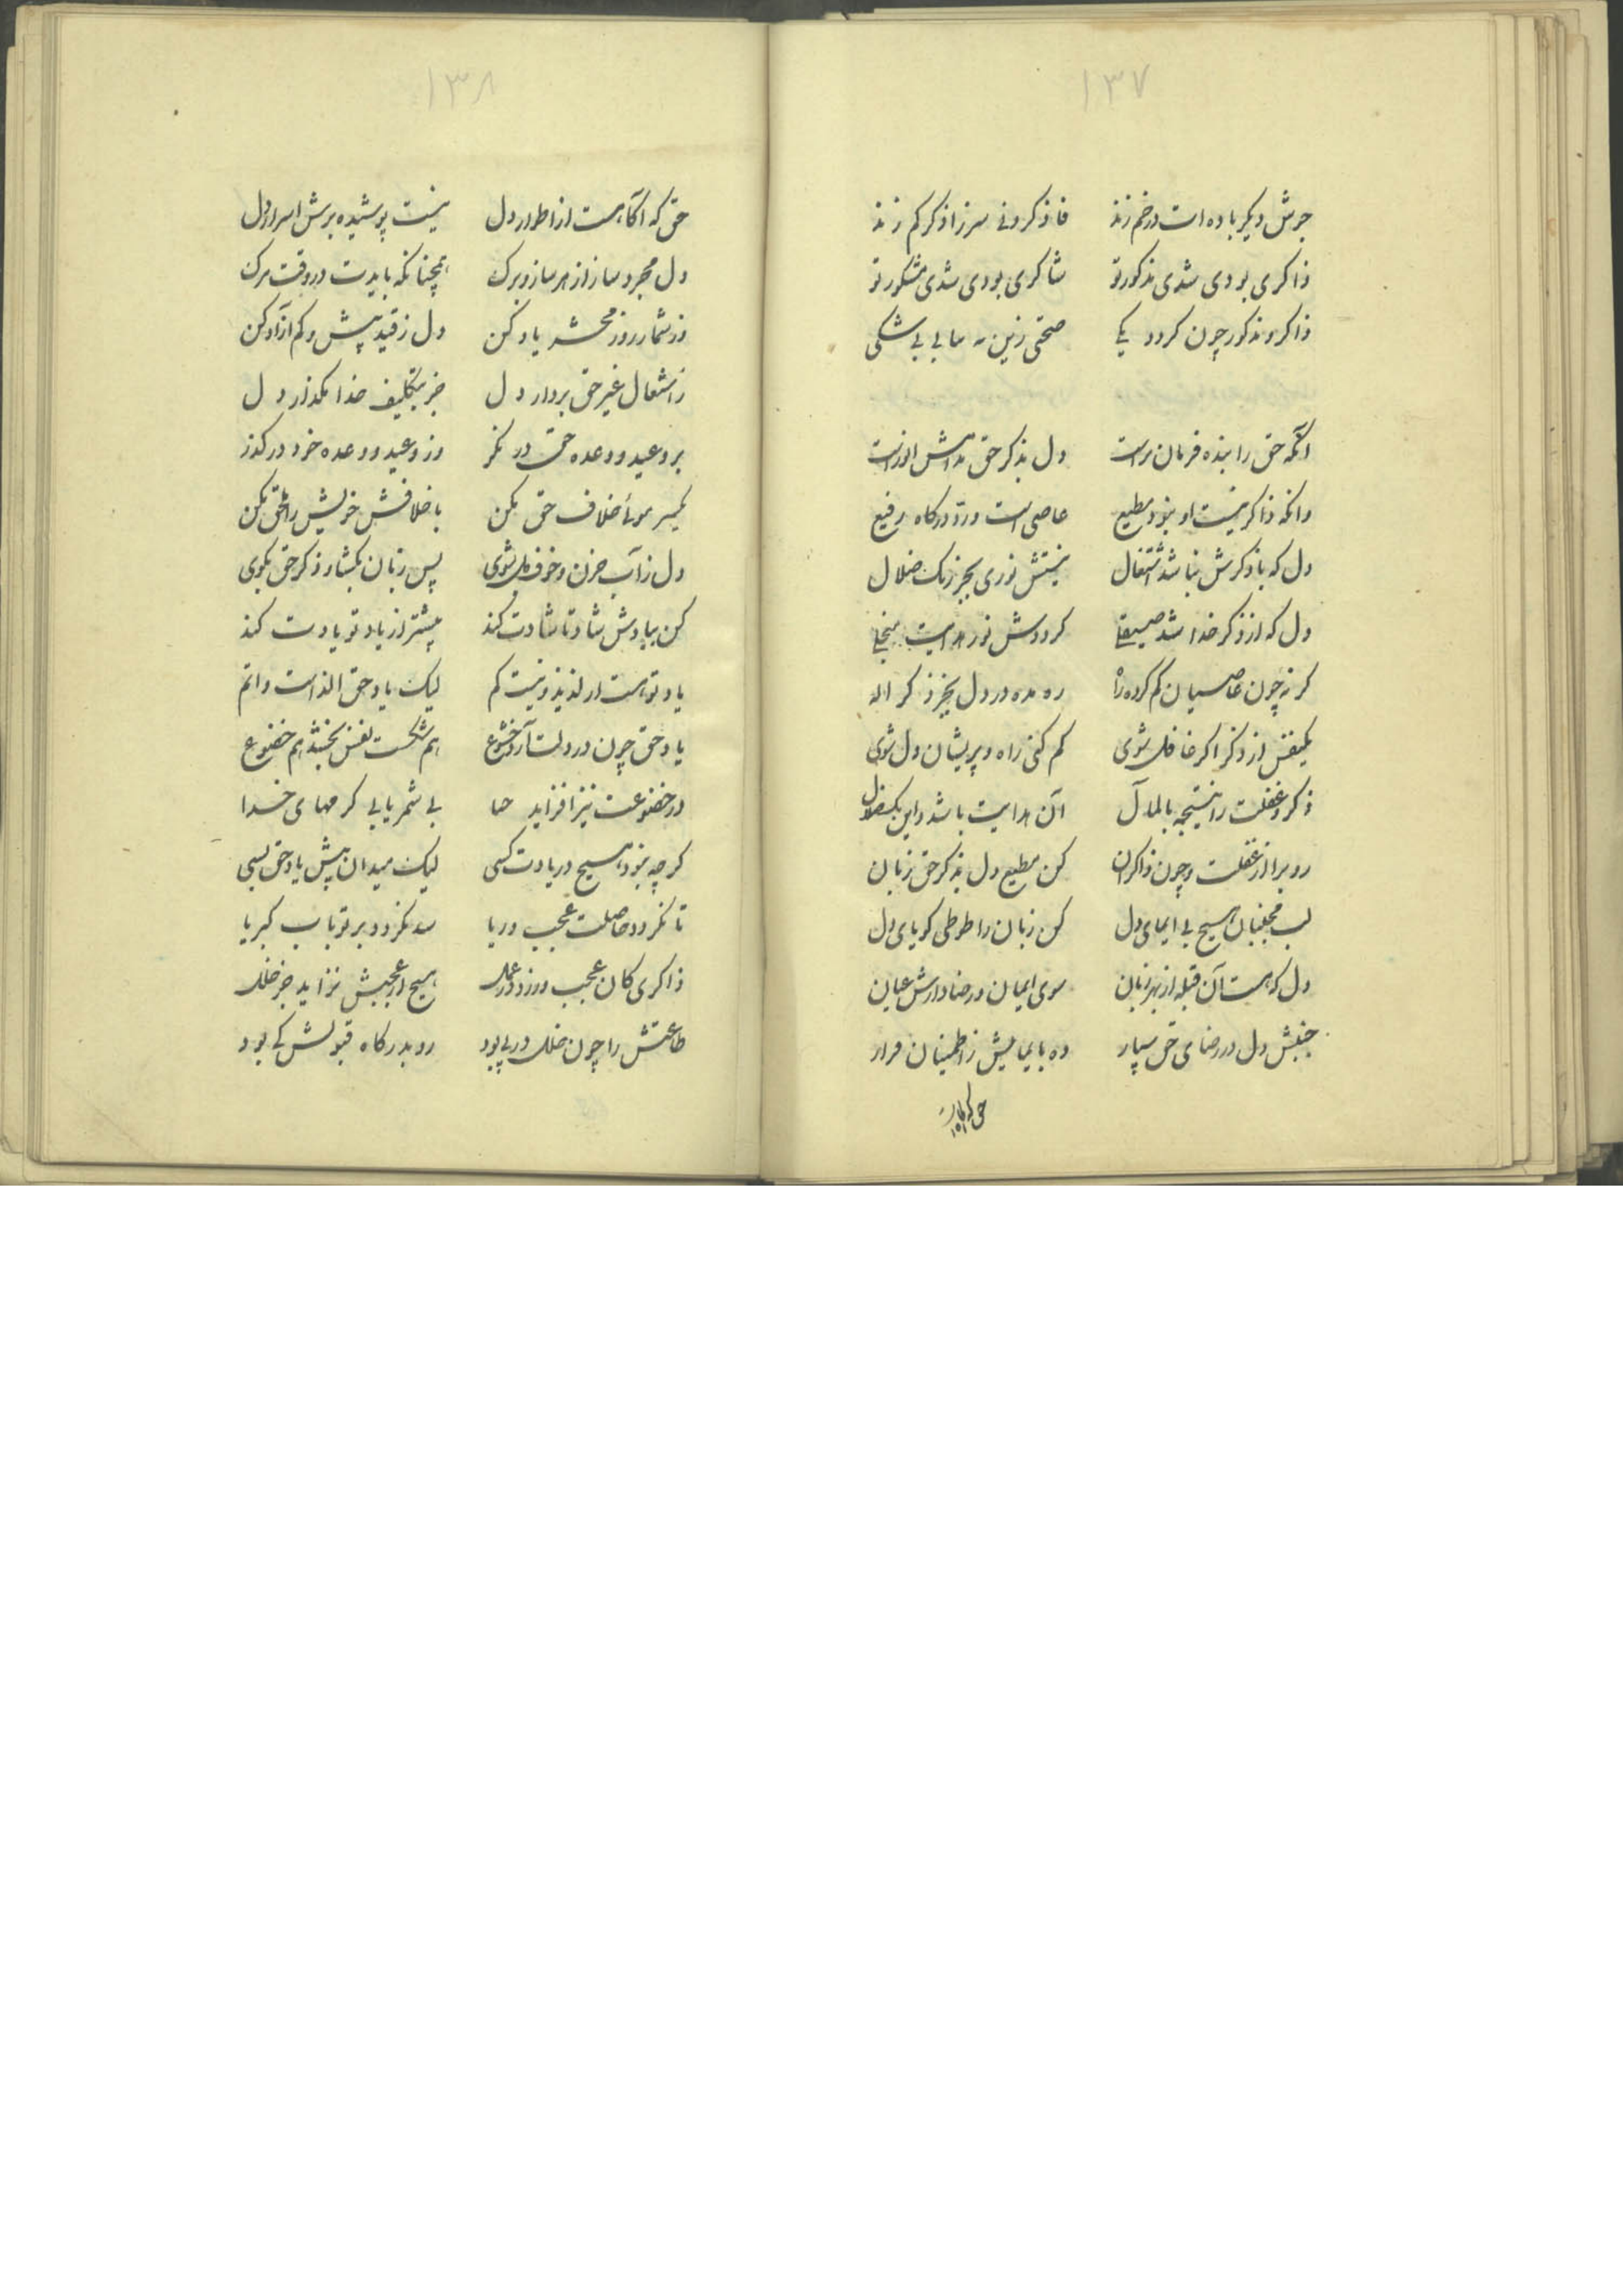 ۱۳۷
جوش دیگر باده است در خم زند فاذکرونی سر ز اذکرکم زند
ذاکری بودی شدی مذکور تو شاکری بودی شدی مشکور تو
ذاکر و مذکور چون گردد یکی صحتی زین به نیابی بی شکی
آنکه حق را بنده فرمان بر است دل بذکر حق مدامش انور است
وانکه ذاکر نیست او نبود مطیع عاصی است و رد درگاه رفیع
دل که با ذکرش نباشد اشتغال نیستش نوری بجز زنگ ضلال
دل که از ذکر خدا شد صیقلی گرددش نور هدایت منجلی
گر نه چون عاصیان گم کرده راه ره مده در دل بجز ذکر اله
یکنفس از ذکر اگر غافل شوی گم کنی راه و پریشان دل شوی
ذکر و غفلت را نتیجه بالمآل آن هدایت باشد و این یک ضلال
رو برا از غفلت و چون ذاکران کن مطیع دل بذکر حق زبان
لب مجنبان هیچ بی ایمای دل کن زبان را طوطی گویای دل
دل که هست آن قبله از بهر زبان سوی ایمان و رضا دارش عیان
جنبش دل در رضای حق سپار ده بایمایش ز اطمینان قرار
حق که آگاه است
۱۳۸
حق که آگاهست از اطوار دل نیست پوشیده برش اسرار دل
دل مجرد ساز از هر ساز و برگ همچنانکه بایدت در وقت مرگ
وز شمار روز محشر یاد کن دل ز قید بیش و کم آزاد کن
ز اشتغال غیر حق بردار دل جز بتکلیف خدا مگذار دل
بر وعید و وعده حق در نگر وز وعید و وعده خود در گذر
یکسر موئی خلاف حق مکن با خلافش خویش را ملحق مکن
دل ز آب حزن و خوف بشوی پس زبان بگشا و ذکر حق بگوی
کن بیادش شاد تا شادت کند بیشتر از یاد تو یادت کند
یاد تو هست ار لذیذ و نیست کم لیک یاد حق الذ است و اتم
یاد حق چون در دلت آرد خشوع هم شکست نفس بخشد هم خضوع
در خضوعت نیز افزاید حیا بی شمر یابی کرمهای خدا
گرچه نبود هیچ در یادت کسی لیک میدان بیش یاد حق بسی
تا نگردد حاصلت عجب و ریا سد نگردد بر تو باب کبریا
ذاکری کان عجب ورزد در عمل هیچ از عجبش نزاید جز خلل
طاعتش را چون خلل در پی بود رو بدرگاه قبولش کی بود